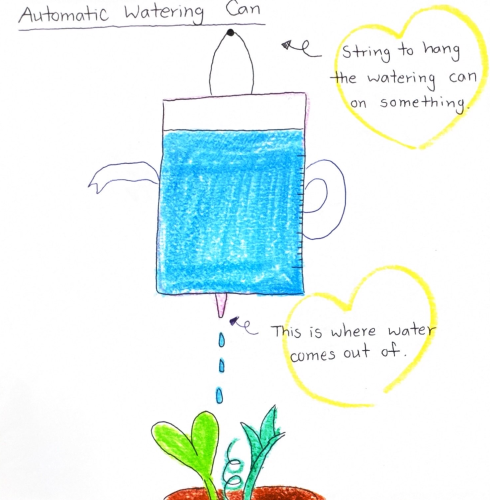 Automatic Watering Can
String to hang
the watering can
on something.
This is where water
comes out of.